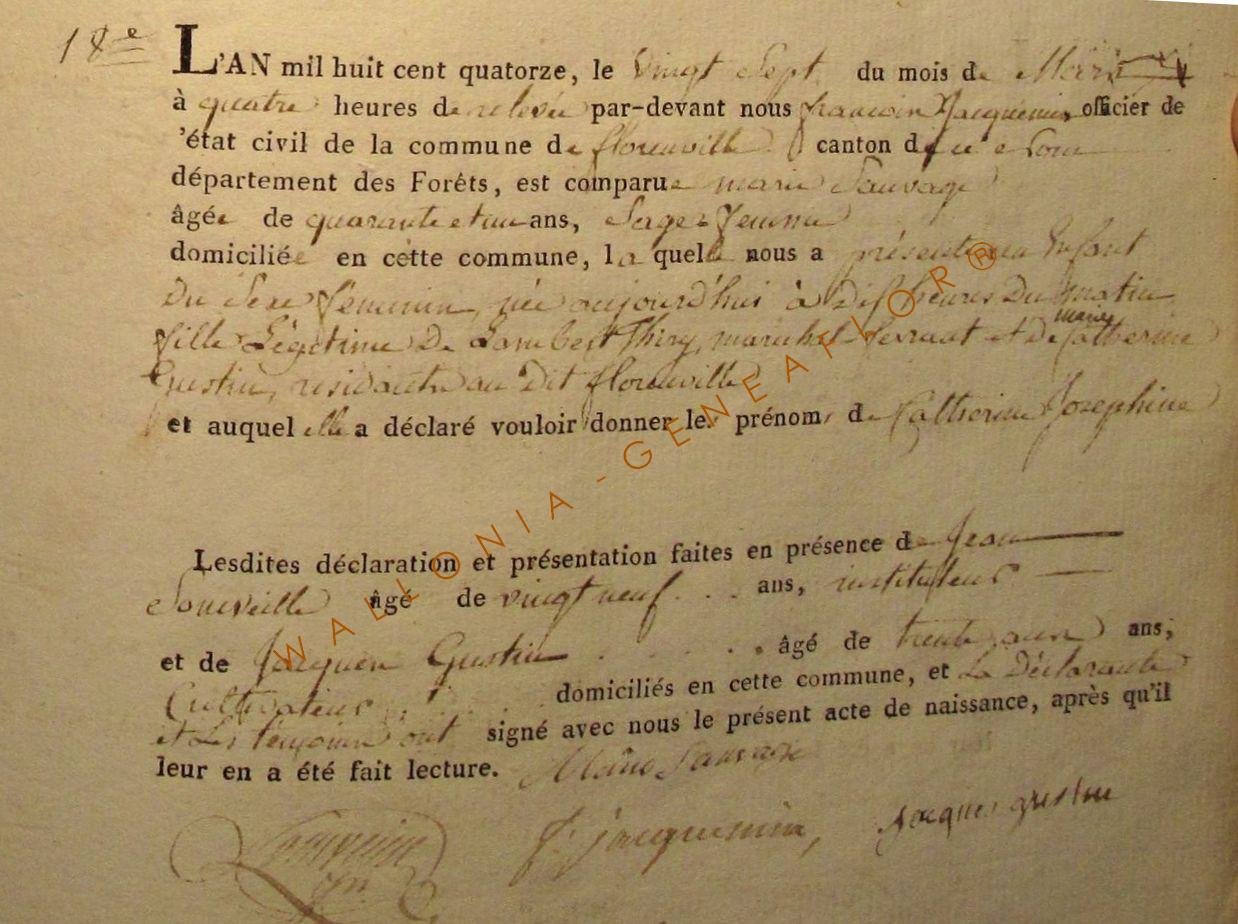 18e
L'AN mil huit cent quatorze, le vingt Sept du mois de Mars
à quatre heures de relevée par-devant nous francois Jacquemin officier de
'état civil de la commune de florenville canton de
département des Forêts, est comparue marie Sauvage
âgée de quarante et un ans, Sage femme
domiciliée en cette commune, la quelle nous a présenté un Enfant
Du Sexe féminin, née aujourd'hui à Dix heures Du matin
fille Légitime De Lambert Thiry, marechal ferrant et De marie Catherine
Gustin, residante au Dit florenville
et auquel elle a déclaré vouloir donner les prénoms de Catherine Josephine
Lesdites déclaration et présentation faites en présence de Jean
âgé de vingt neuf ans, instituteur
et de Jacques Gustin âgé de trente ans,
Cultivateur domiciliés en cette commune, et La Déclarante
et Les temoins ont signé avec nous le présent acte de naissance, après qu'il
leur en a été fait lecture. Marie Sauvage
f. jacquemin, jacques gustin
WALLONIA-GENEAFLOR®